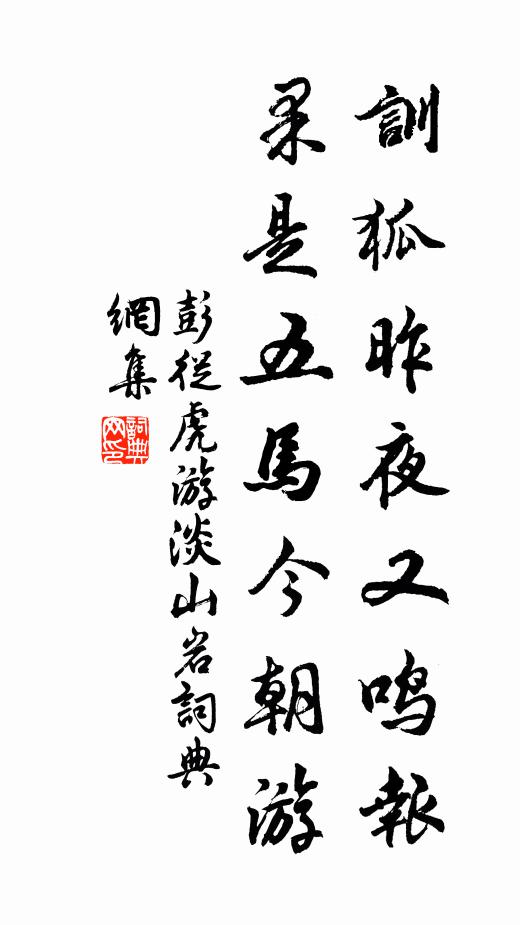 訓狐昨夜又鳴報
果是五馬今朝游
彭從虎游淡山岩詞典
網集
詞典網印